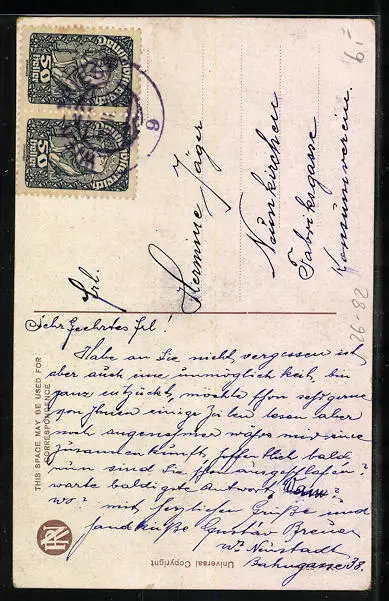 6.-
50
Heller
Deutschösterreich
50
Heller
Deutschösterreich
9
Frl.
Hermine Jäger
Neunkirchen
Fabriksgasse
Konsumverein.
26-82
Sehr Geehrtes Frl!
Habe an Sie nicht vergessen ist
aber auch eine unmöglich keit, bin
ganz entzückt, möchte schon sehr gerne
von Ihnen einige Zeilen lesen aber
noch angenehmer wäre mir eine
Zusammenkunft, hoffentlich bald
nun sind Sie schon ausgeschlafen?
warte baldigste Antwort, Wann?
wo? mit herzlichen Grüße und
Handküße Gustav Breuer
Wr. Neustadt
Bahngasse 38.
THIS SPACE MAY BE USED FOR
CORRESPONDENCE
Universal Copyright